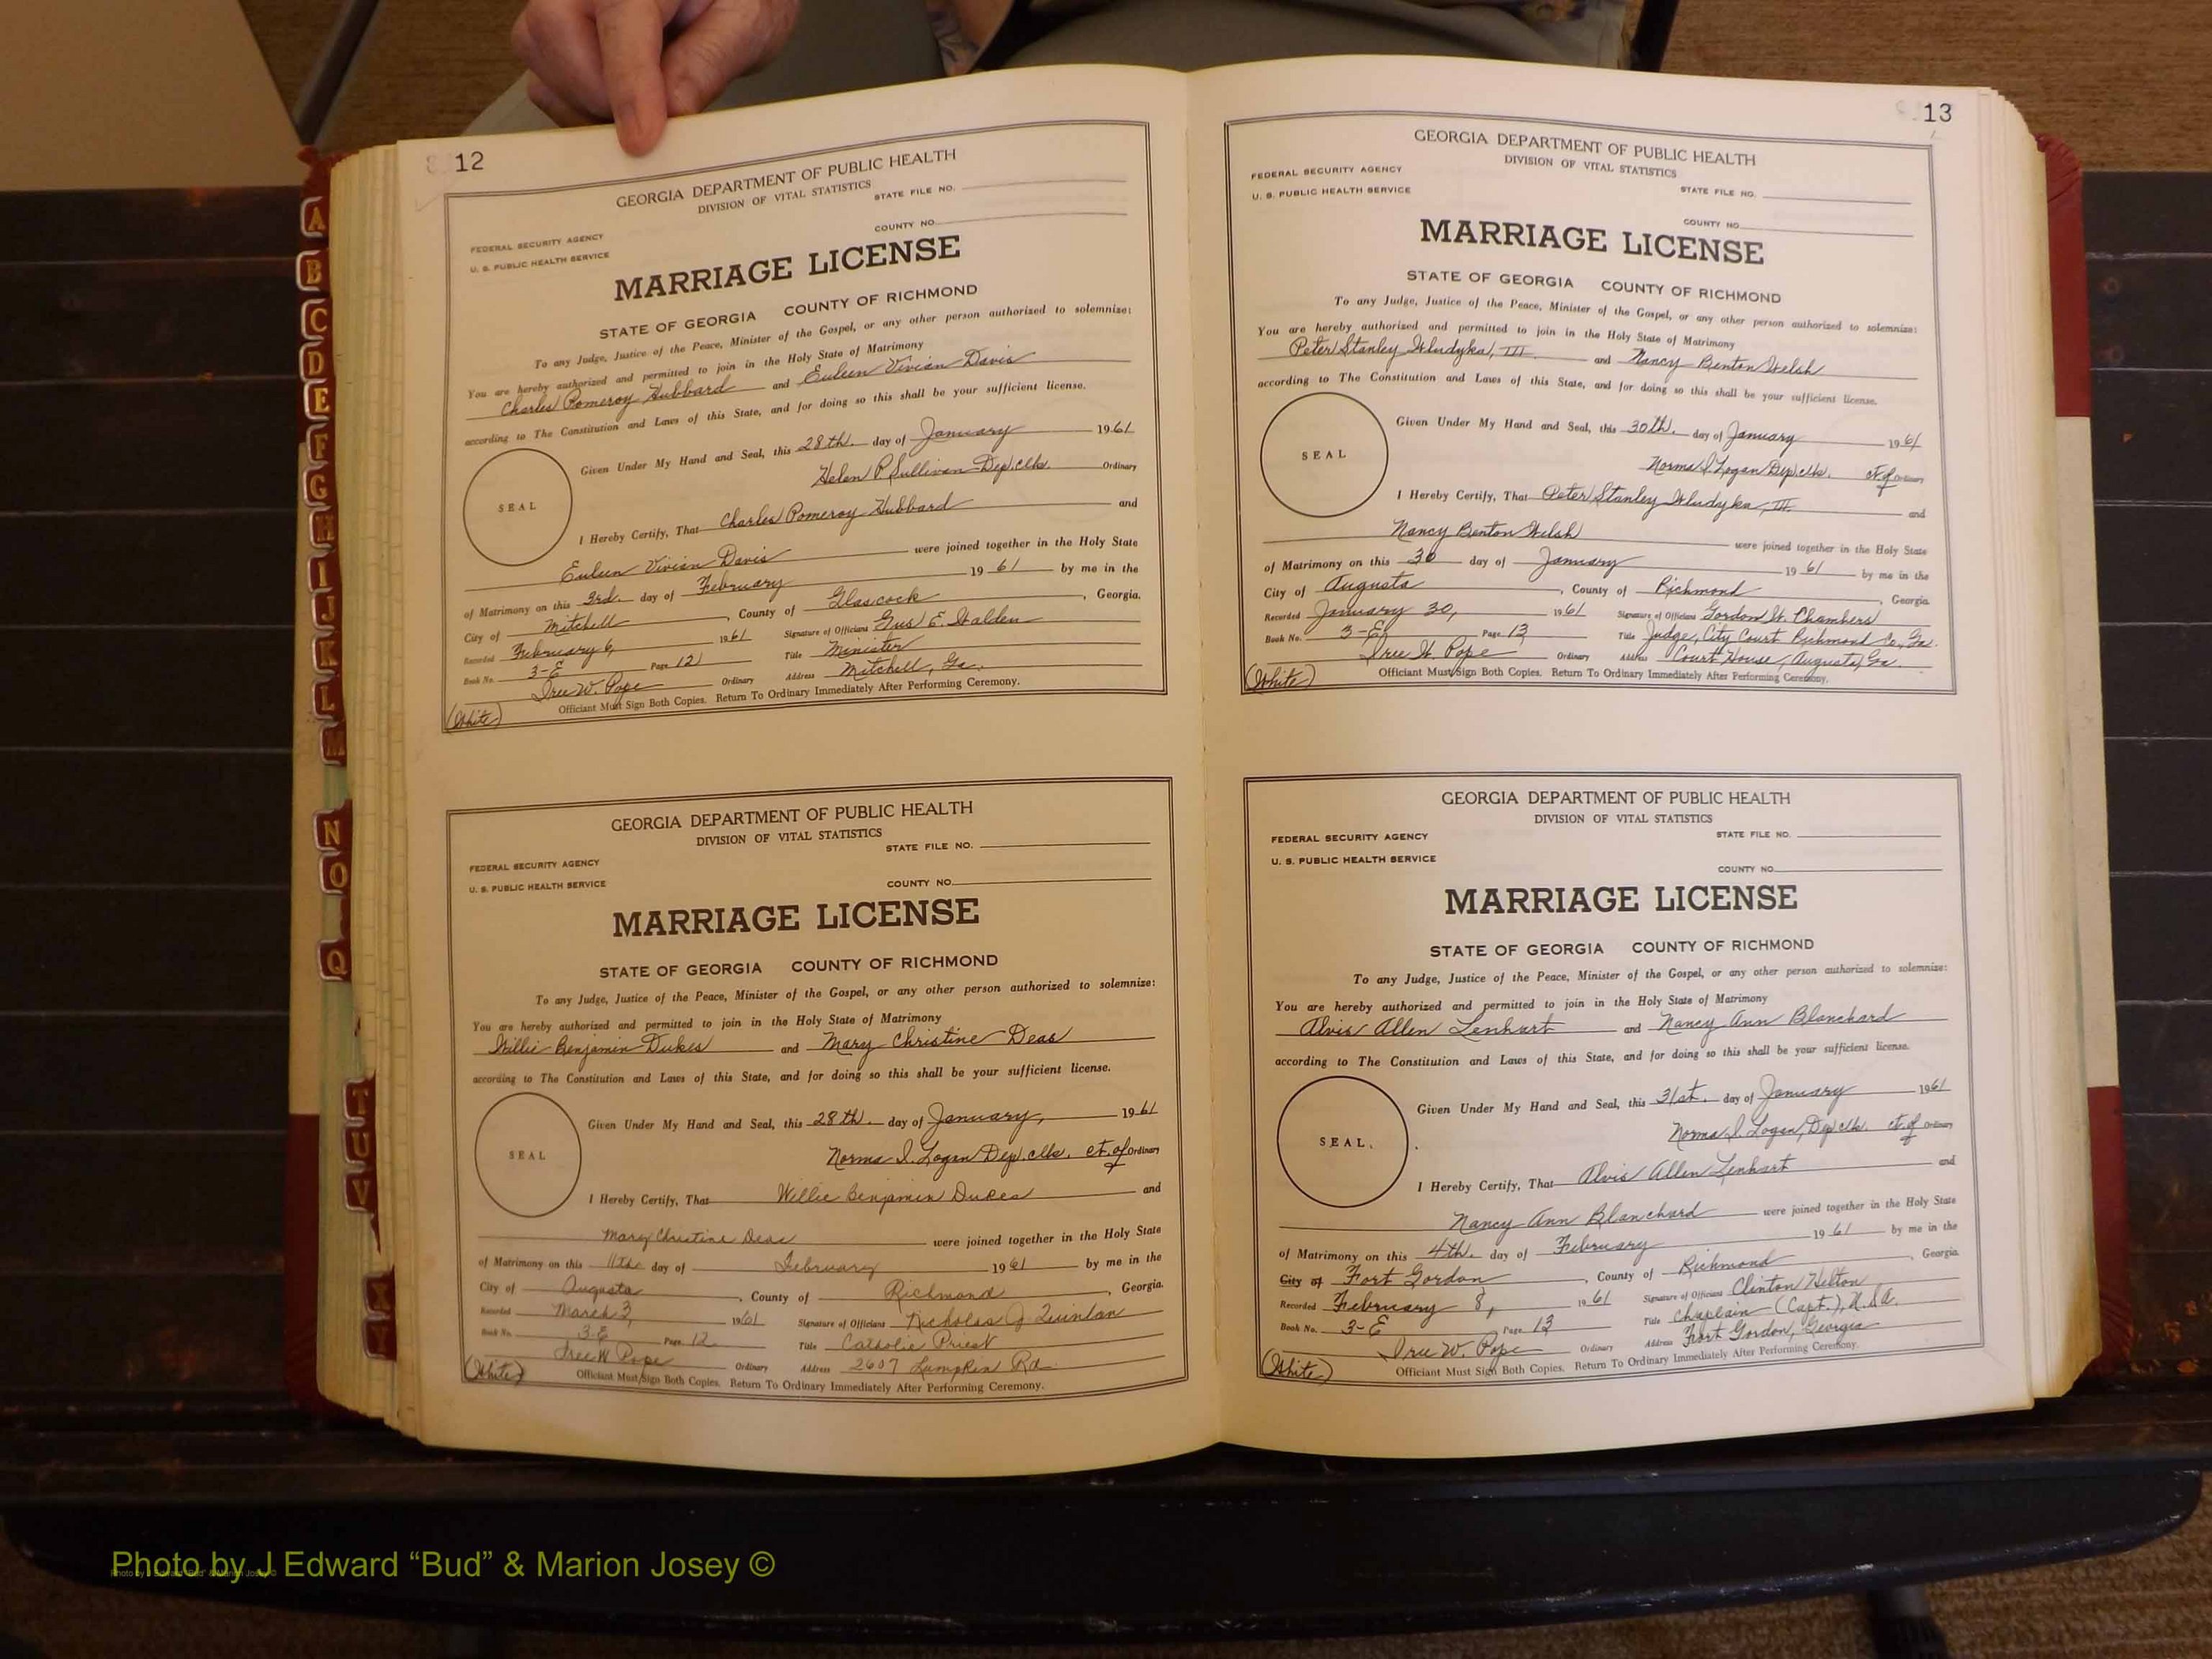 12
GEORGIA DEPARTMENT OF PUBLIC HEALTH
DIVISION OF VITAL STATISTICS
STATE FILE NO.
COUNTY NO.
FEDERAL SECURITY AGENCY
U. S. PUBLIC HEALTH SERVICE
MARRIAGE LICENSE
STATE OF GEORGIA COUNTY OF RICHMOND
To any Judge, Justice of the Peace, Minister of the Gospel, or any other person authorized to solemnize:
You are hereby authorized and permitted to join in the Holy State of Matrimony
Charles Pomeroy Hubbard and Euleen Vivian Davis
according to The Constitution and Laws of this State, and for doing so this shall be your sufficient license.
Given Under My Hand and Seal, this 28th. day of January 1961
Helen P. Sullivan Dep. clk. Ordinary
SEAL
I Hereby Certify, That Charles Pomeroy Hubbard and
Euleen Vivian Davis were joined together in the Holy State
of Matrimony on this 3rd. day of February 1961 by me in the
City of Mitchell, County of Glascock, Georgia.
Recorded February 6, 1961 Signature of Officiant Gus E. Walden
Book No. 3-E Page 12 Title Minister
Iree W. Pope Ordinary Address Mitchell, Ga.
(White) Officiant Must Sign Both Copies. Return To Ordinary Immediately After Performing Ceremony.
GEORGIA DEPARTMENT OF PUBLIC HEALTH
DIVISION OF VITAL STATISTICS
STATE FILE NO.
FEDERAL SECURITY AGENCY
U. S. PUBLIC HEALTH SERVICE COUNTY NO.
MARRIAGE LICENSE
STATE OF GEORGIA COUNTY OF RICHMOND
To any Judge, Justice of the Peace, Minister of the Gospel, or any other person authorized to solemnize:
You are hereby authorized and permitted to join in the Holy State of Matrimony
Willie Benjamin Dukes and Mary Christine Deas
according to The Constitution and Laws of this State, and for doing so this shall be your sufficient license.
Given Under My Hand and Seal, this 28th. day of January, 1961
Norma I. Logan Dep. clk. ct. of Ordinary
SEAL
I Hereby Certify, That Willie Benjamin Dukes and
Mary Christine Deas were joined together in the Holy State
of Matrimony on this 11th day of February 1961 by me in the
City of Augusta, County of Richmond, Georgia.
Recorded March 3, 1961 Signature of Officiant Nicholas J. Quinlan
Book No. 3-E Page 12 Title Catholic Priest
Iree W Pope Ordinary Address 2607 Lumpkin Rd.
(White) Officiant Must Sign Both Copies. Return To Ordinary Immediately After Performing Ceremony.
13
GEORGIA DEPARTMENT OF PUBLIC HEALTH
DIVISION OF VITAL STATISTICS
FEDERAL SECURITY AGENCY
U. S. PUBLIC HEALTH SERVICE STATE FILE NO.
COUNTY NO.
MARRIAGE LICENSE
STATE OF GEORGIA COUNTY OF RICHMOND
To any Judge, Justice of the Peace, Minister of the Gospel, or any other person authorized to solemnize:
You are hereby authorized and permitted to join in the Holy State of Matrimony
Peter Stanley Wludyka, III and Nancy Benton Welsh
according to The Constitution and Laws of this State, and for doing so this shall be your sufficient license.
Given Under My Hand and Seal, this 30th. day of January 1961
Norma I. Logan Dep. clk. ct. of Ordinary
SEAL
I Hereby Certify, That Peter Stanley Wludyka, III. and
Nancy Benton Welsh were joined together in the Holy State
of Matrimony on this 30 day of January 1961 by me in the
City of Augusta, County of Richmond, Georgia.
Recorded January 30, 1961 Signature of Officiant Gordon W. Chambers
Book No. 3-E Page 13 Title Judge, City Court Richmond Co., Ga.
Iree W. Pope Ordinary Address Court House, Augusta, Ga.
(White) Officiant Must Sign Both Copies. Return To Ordinary Immediately After Performing Ceremony.
GEORGIA DEPARTMENT OF PUBLIC HEALTH
DIVISION OF VITAL STATISTICS
FEDERAL SECURITY AGENCY STATE FILE NO.
U. S. PUBLIC HEALTH SERVICE
COUNTY NO.
MARRIAGE LICENSE
STATE OF GEORGIA COUNTY OF RICHMOND
To any Judge, Justice of the Peace, Minister of the Gospel, or any other person authorized to solemnize:
You are hereby authorized and permitted to join in the Holy State of Matrimony
Alvis Allen Lenhart and Nancy Ann Blanchard
according to The Constitution and Laws of this State, and for doing so this shall be your sufficient license.
Given Under My Hand and Seal, this 31st. day of January 1961
Norma I. Logan, Dep. clk. ct. of Ordinary
SEAL
I Hereby Certify, That Alvis Allen Lenhart and
Nancy Ann Blanchard were joined together in the Holy State
of Matrimony on this 4th. day of February 1961 by me in the
City of Fort Gordon, County of Richmond, Georgia
Recorded February 8, 1961 Signature of Officiant Clinton Hilton
Book No. 3-E Page 13 Title Chaplain (Capt.), U.S.A.
Iree W. Pope Ordinary Address Fort Gordon, Georgia
(White) Officiant Must Sign Both Copies. Return To Ordinary Immediately After Performing Ceremony.
A
B
C
D
E
F
G
H
I
J
K
L
M
N
O
Q
T
U
V
X
Y
Photo by J Edward “Bud” & Marion Josey ©
Photo by J Edward "Bud" & Marion Josey ©